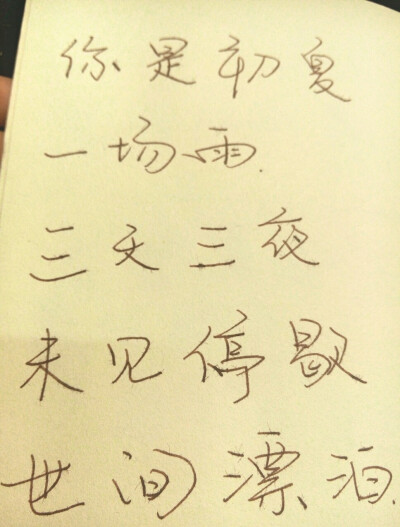 你是初夏
一场雨.
三天三夜
未见停歇
世间漂泊.